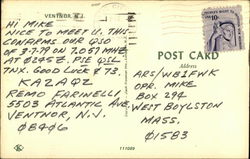 VENTNOR, N.J.
HI MIKE
NICE TO MEET U. THIS
CONFIRMS OUR QSO
OF 3-7-79 ON 7.057 MHZ
AT 0245Z. PSE QSL
TNX. GOOD LUCK & 73.
KA2AQZ
REMO FARINELLI
5503 ATLANTIC AVE.
VENTNOR, N.J.
08406
POST CARD
Address
ARS/WB1FWK
OPR. MIKE
BOX 294
WEST BOYLSTON
MASS.
01583
111089